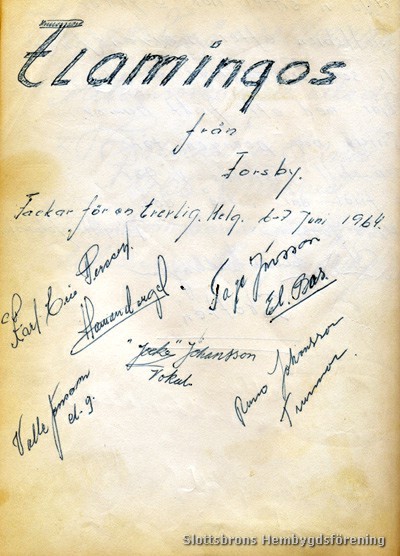 Flamingos
från
Forsby.
Tackar för en trevlig. Helg. 6-7 Juni 1964.
Karl. Eric Persson.
Hammondorgel.
Tage Jonsson
El. Bas.
"Jocke" Johansson
Vokal
Valle
el-g.
Johansson
Trummor.
Slottsbrons Hembygdsförening